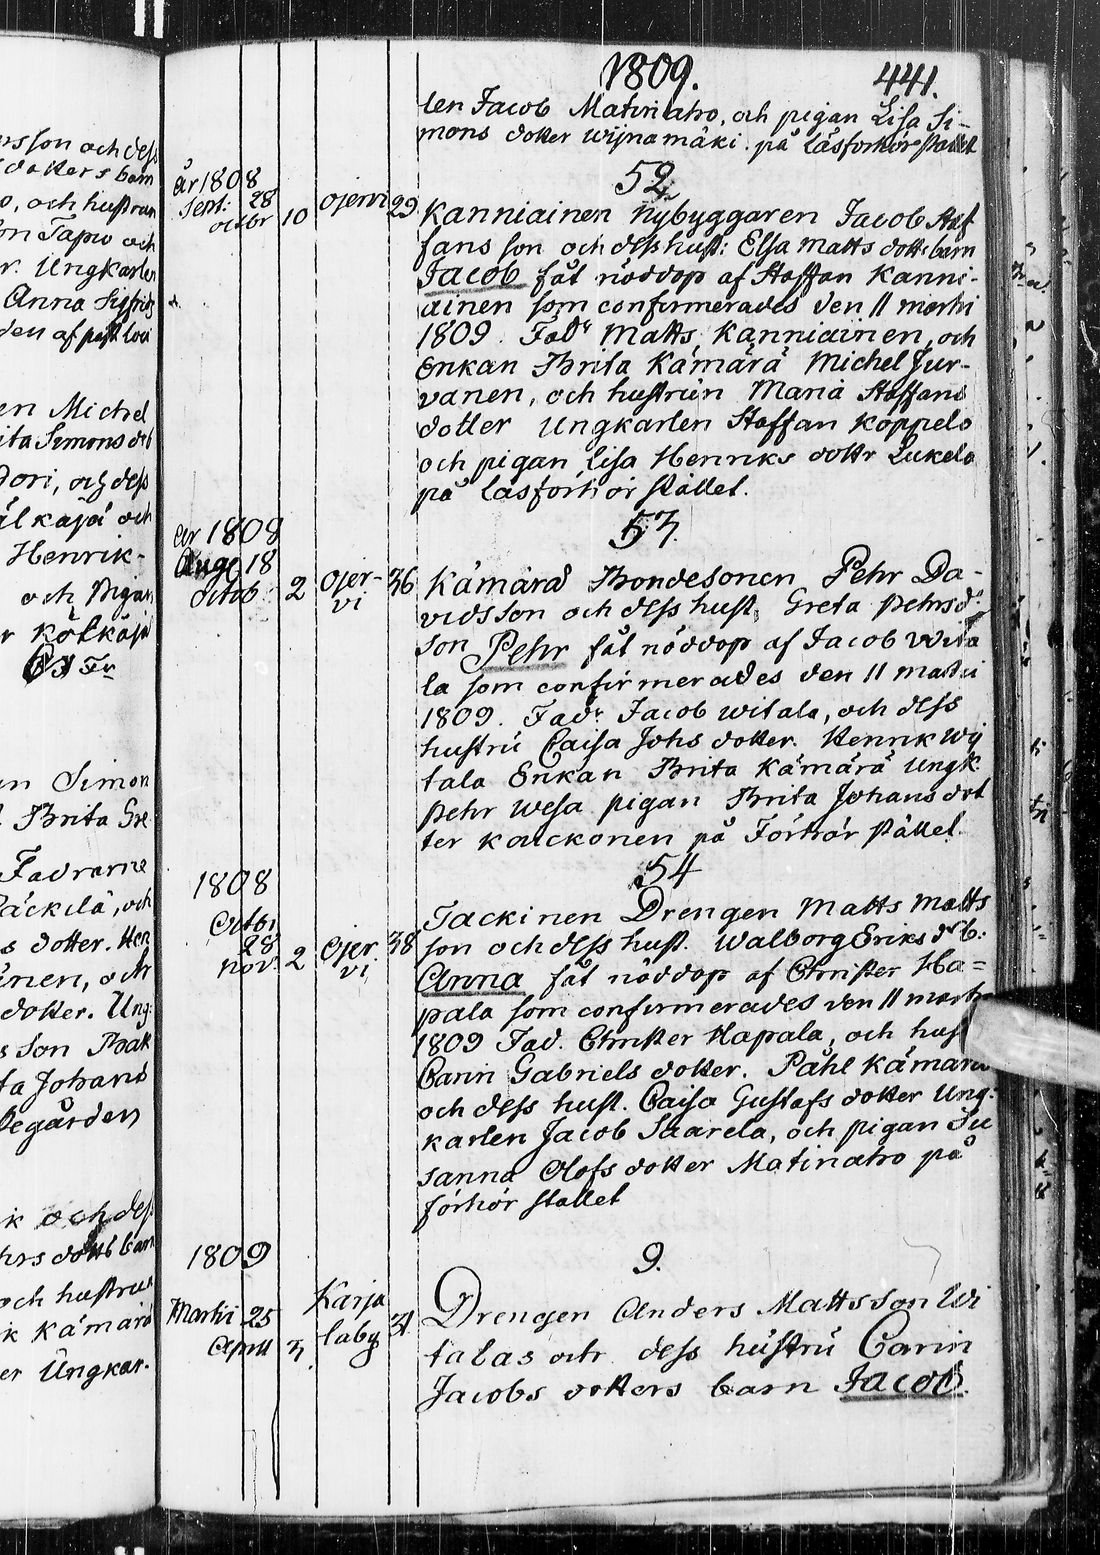 1809.
441.
len Jacob Matinlatro, och pigan Lisa Si-
mons dotter wijnamäki. på Läsforhörstället
52.
år 1808
Sept: 28
octbr 10 ojervi 29
Kanniainen Nybyggaren Jacob Staf
fans son och dess hust: Elsa Matts dott: barn
Jacob fåt nöddop af Staffan Kanni-
ainen som confirmerades den 11 martii
1809. Fad^r Matts Kanniainen, och
Enkan Brita Kämärä Michel Jur-
vanen, och hustrun Maria Staffans
dotter Ungkarlen Staffan Koppelo
och pigan Lisa Henriks dottr Lukela
på Läsforhör stället.
53.
år 1808
Aug 18
octob: 2 ojer- 36
vi
Kämärä Bondesonen Pehr Da-
vidsson och dess hust. Greta Pehrsd:
son Pehr fåt nöddop af Jacob Wita
la som confirmerades den 11 martii
1809. Fad^r Jacob witala, och dess
hustru Caisa Johs dotter. Henrik Wij
tala Enkan Brita Kämärä Ungk
Pehr Wesa pigan Brita Johans dot
ter Kauckonen på Förhör stället.
54
1808
Octbr
28
nov. 2 Ojer. 38
vi
Tackinen Drengen Matts Matts
son och dess hust. Walborg Eriks d^r b:
Anna fåt nöddop af Christer Ha=
pala som confirmerades den 11 martii
1809 Fad. Christer Hapala, och hus
Carin Gabriels dotter. Påhl Kämärä
och dess hust. Caisa Gustafs dotter Ung:
karlen Jacob Saarela, och pigan Su
sanna Olofs dotter Matinatro på
förhör stallet
9.
1809
Martii 25
April 3. Karja
laby 31
Drengen Anders Mattsson Wi
talas och dess hustru Carin
Jacobs dotters barn Jacob.
nsson och dess
dotters barn
o, och hustrun
on Tapio och
r. Ungkarlen
Anna Sigfrids
en Michel
ita Simons dot
ori, och dess
Henrik-
och Pigan
un Simon
Brita Gre
Fadrarne
äckilä, och
s dotter. Hen
änen, och
dotter. Ung:
s son
ta Johans
egården
ik och dess
hrs dotts barn
och hustrun
ik Kämärä
er Ungkar.